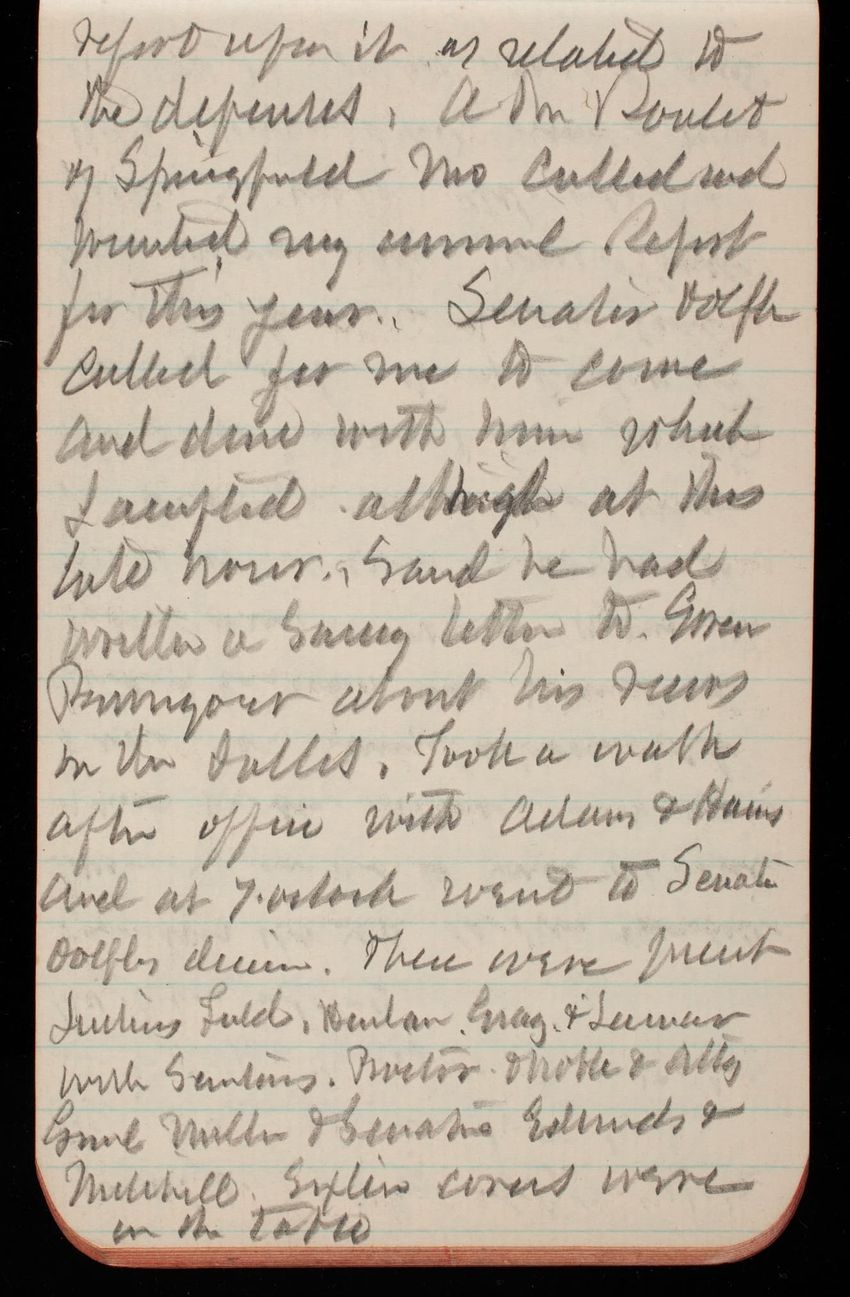 report upon it as related to
the defenses. A Mr
of Springfield Mo called and
wanted my annual Report
for this year. Senator Dolph
called for me to come
and dine with him which
I accepted although at this
late hour. Said he had
written a saucy letter to Genrl
about his views
on the Dalles. Took a walk
after office with Adams & Hains
and at 7 oclock went to Senator
Dolphs dinner. There were presnt
Justices Field, Harlan, Gray, & Lamar
with Senators. Proctor & Atty
Genrl Miller & Senators Edmunds &
Mitchell. Sixteen covers were
on the table